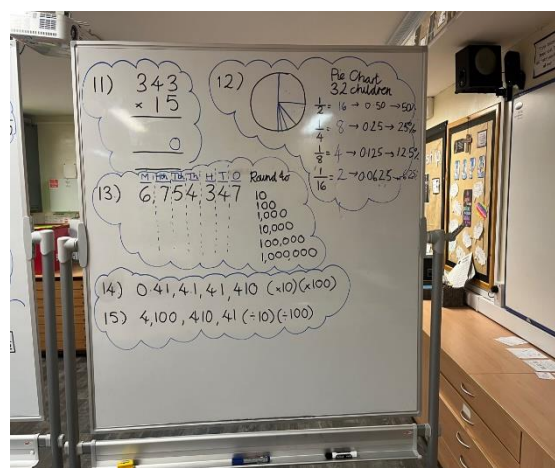 11) 343
× 15
0
12) Pie Chart
32 children
1/2 = 16 → 0·50 → 50%
1/4 = 8 → 0·25 → 25%
1/8 = 4 → 0·125 → 12·5%
1/16 = 2 → 0·0625 →
M HTh TTh Th H T O
13) 6,754,347
Round to
10
100
1,000
10,000
100,000
1,000,000
14) 0·41, 4·1, 41, 410 (×10)(×100)
15) 4,100, 410, 41 (÷10)(÷100)